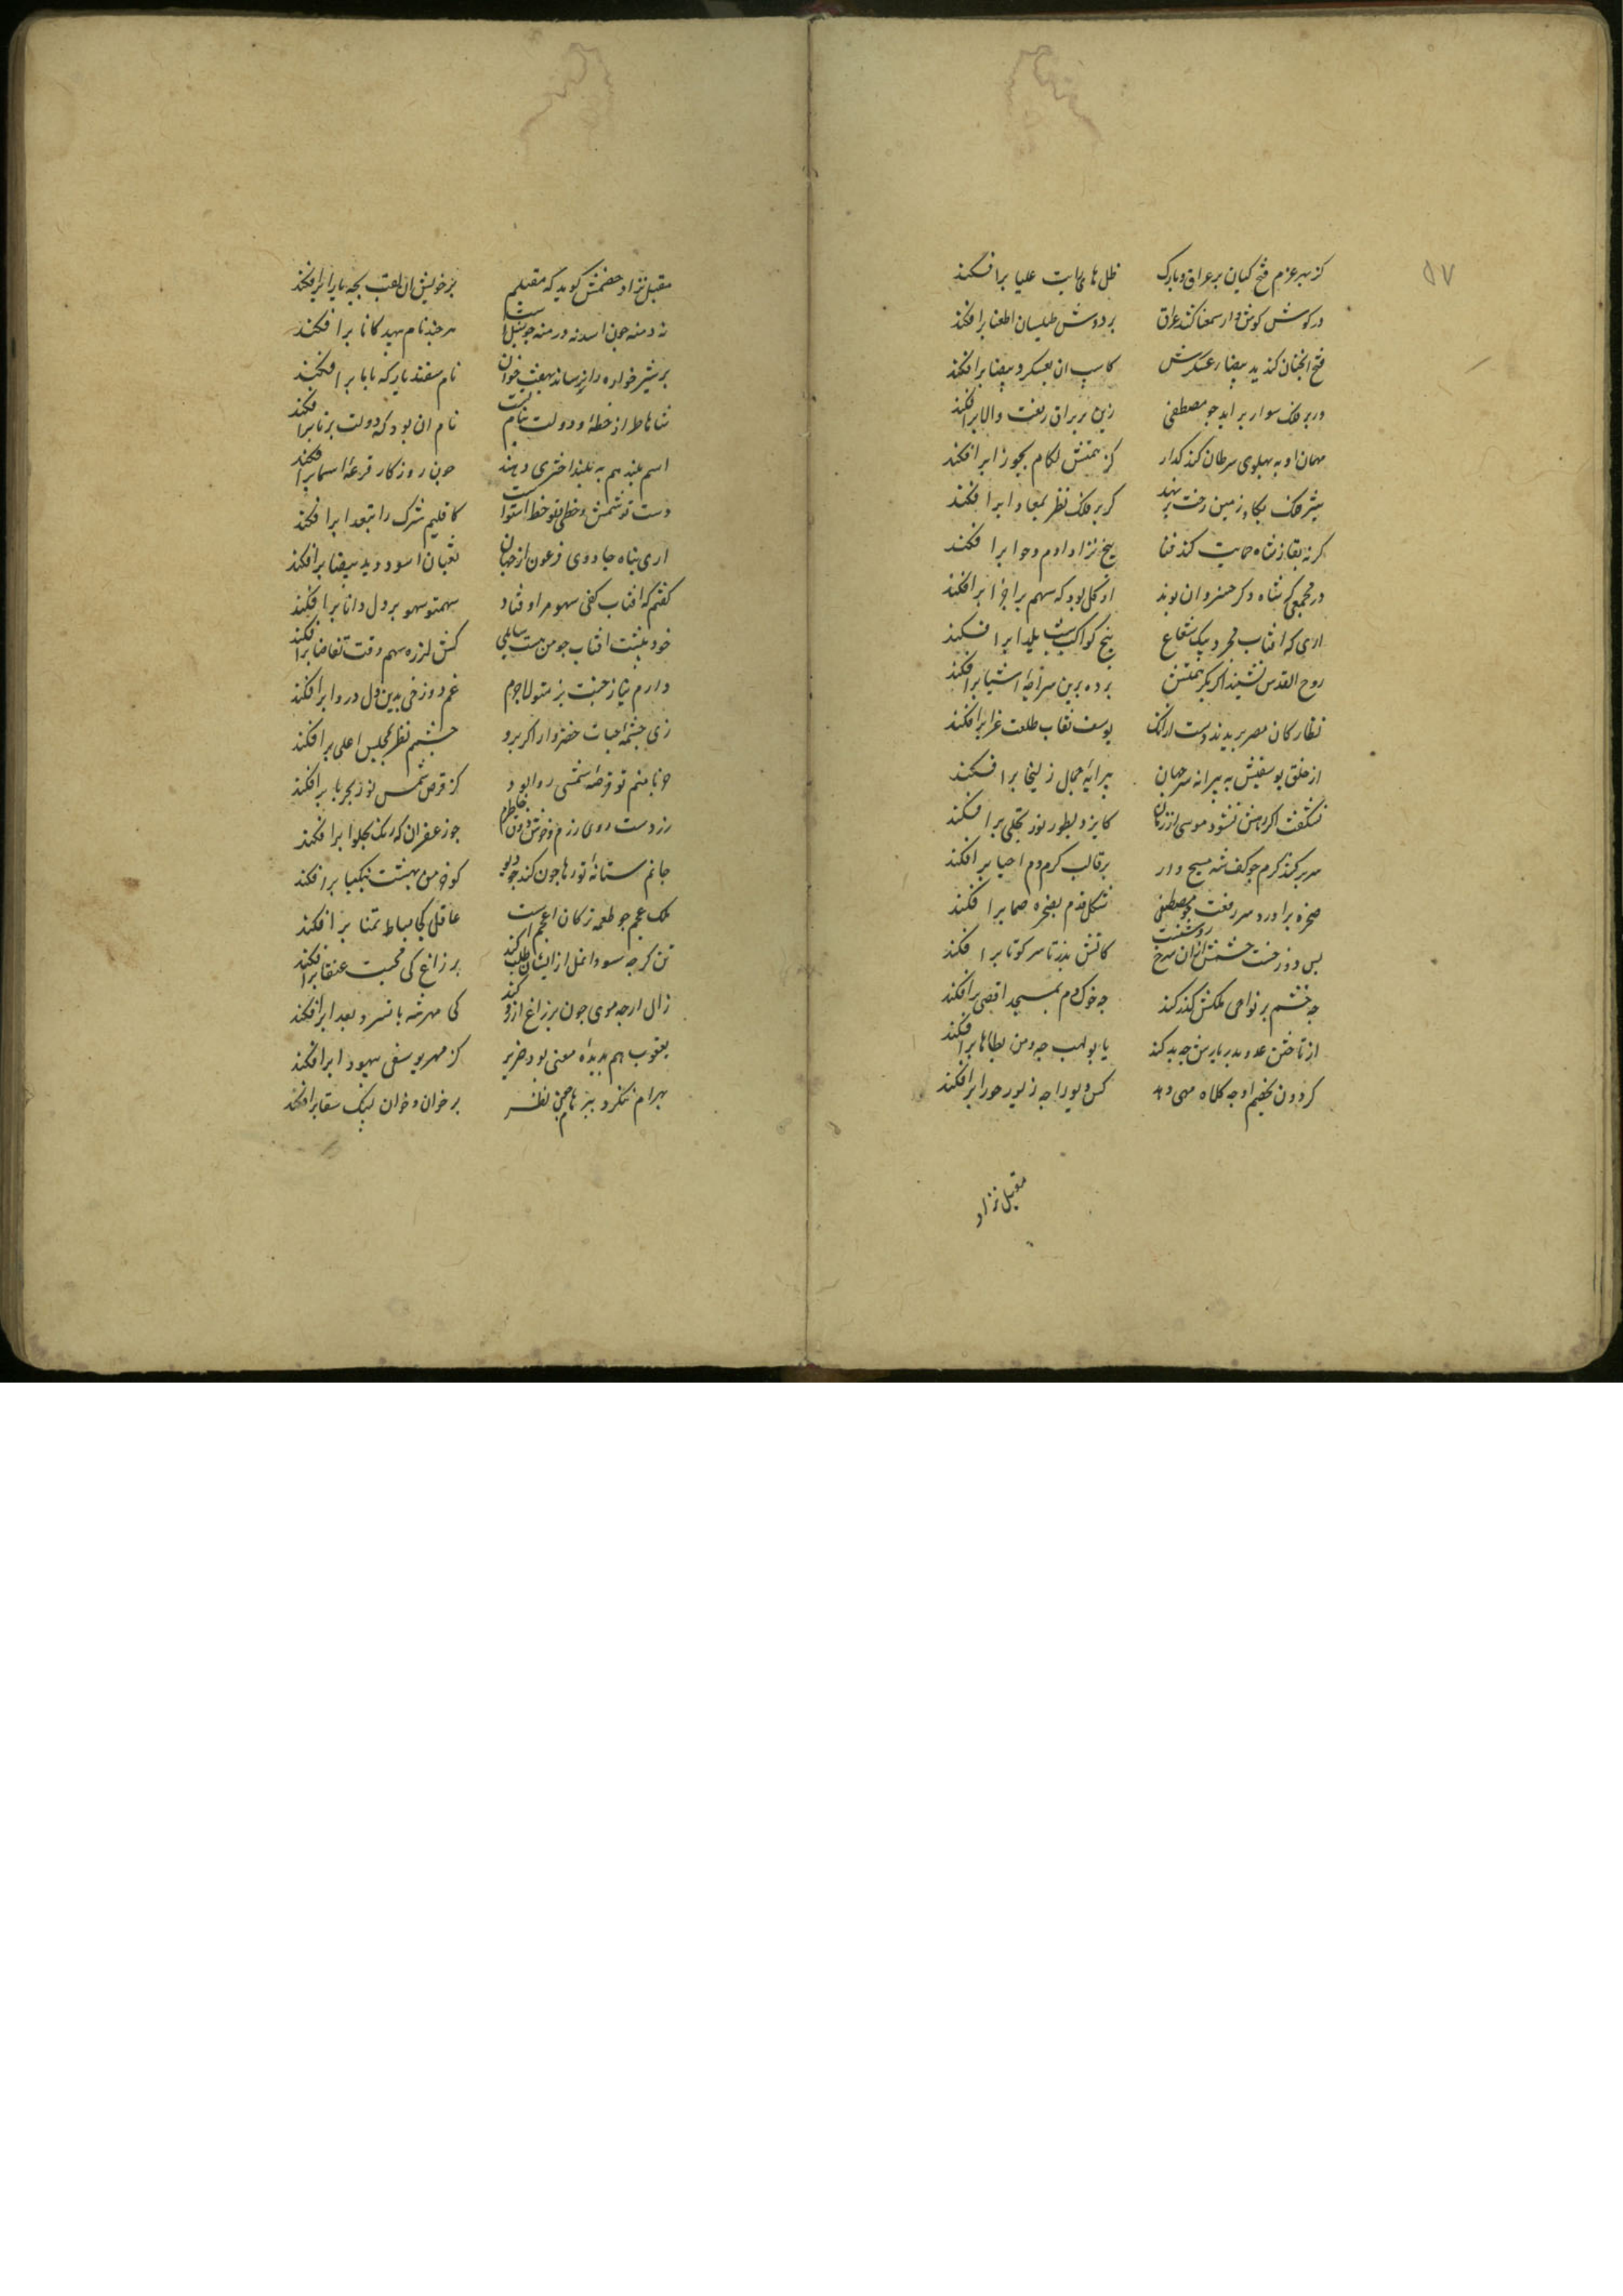 ۵۷
کز بهر عزم فتح کیان بر عراق و پارک ظل همای رایت علیا برافکند
در کوشش کوشوار سمعنا کند عراق بر دوش طیلسان اطعنا برافکند
فتح انچنان کند ید بیضا ز عسکرش کاسیب ان بعسکر و بیضا برافکند
ور بر فلک سوار برآید چو مصطفی زین بر براق رفعت والا برافکند
مهمان او به پهلوی سرطان کند گذار کز همتش لگام بجوزا برافکند
شیر فلک بگاو زمین رخت برنهد گر بر فلک نظر بمعادا برافکند
گر نه بقا ز شاه حمایت کند فنا بیخ نژاد ادم و حوا برافکند
در مجمعی که شاه و دگر خسروان بوند او کل بود که سهم براجزا برافکند
اری که افتاب مجرد بیک شعاع بیخ کواکب شب یلدا برافکند
روح القدس نشیند اگر بکر همتش پرده برین سراچه اشیا برافکند
نظارکان مصر ببریدند دست ازانک یوسف نقاب طلعت غرا برافکند
از خلق یوسفیش به پیرانه سر جهان پیرایه جمال زلیخا برافکند
نشگفت اگر وحش نشود موسی ان زمان کایزد بطور نور تجلی برافکند
سر برکند کرم چو کف شه مسیح وار بر قالب کرم دم احیا برافکند
صخره براورد سر رفعت چو مصطفی شکل قدم بصخره صما برافکند
بس دوزخست خشمش ازان سرخ رو شدست کاتش بزر تا سر کوتا برافکند
چه خشم بر نواحی ملکش گذر کند چه خوک دم بمسجد اقصی برافکند
از تاختن عدو بدر پارش چه بد کند یا بولهب چه وهن بطاها برافکند
کردون بخصم او چه کلاه مهی دهد کس دیو را چه زیور حورا برافکند
مقبل نژاد
مقبل نژاد خصمش گوید که مقبلم بر خویش ان لقب بچه یارا برافکند
نه دمنه چون اسد نه درمنه چو سنبلست هرچند نام بیهده کانا برافکند
بر شیر خواره را نرساند بهفت خوان نام سفندیار که بابا برافکند
شاها طراز خطه و دولت بنام تست نام ان بود که دولت برنا برافکند
اسم بلند هم به بلند اختری دهند چون روزگار قرعه اسما برافکند
دست تو شمس و خطی تو خط استواست کاقلیم شرک را بتعدا برافکند
اری بناه جادوی فرعون از جهان ثعبان اسود و ید بیضا برافکند
گفتم که افتاب کفی سهوم اوفتاد سهمتو سهو بر دل دانا برافکند
خود پیشت افتاب چو من هست سایلی کش لرزه سهم وقت تقاضا برافکند
دارم نیاز جنت بزمتو لاجرم غم دوزخی بدین دل دروا برافکند
زی چشمه حیات خضروار اگر برو چشم نظر بمجلس اعلی برافکند
حربا منم تو قرصه شمسی روا بود کز قرص شمس نور بحربا برافکند
زردست روی رزم و خوش ذوق خاطرم چو زعفران که رنگ بحلوا برافکند
جانم ستانه تو رها چون کند چو دیو کو خرمن بهشت بنکبا برافکند
ملک عجم چو طعمه ترکان اعجم است عاقل کجا بساط تمنا برافکند
تن گرچه سو و اتمک ازیشان طلب کند بر زاغ کی محبت عنقا برافکند
زال ارچه موی چون پر زاغ ارزو کند کی مهر شه بانسر و بغرا برافکند
یعقوب هم بدیده معنی بود ضریر کز مهر یوسفی بیهودا برافکند
بهرام ننگرد ببراهام چون نظر بر خوان و خوان لنبک سقا برافکند